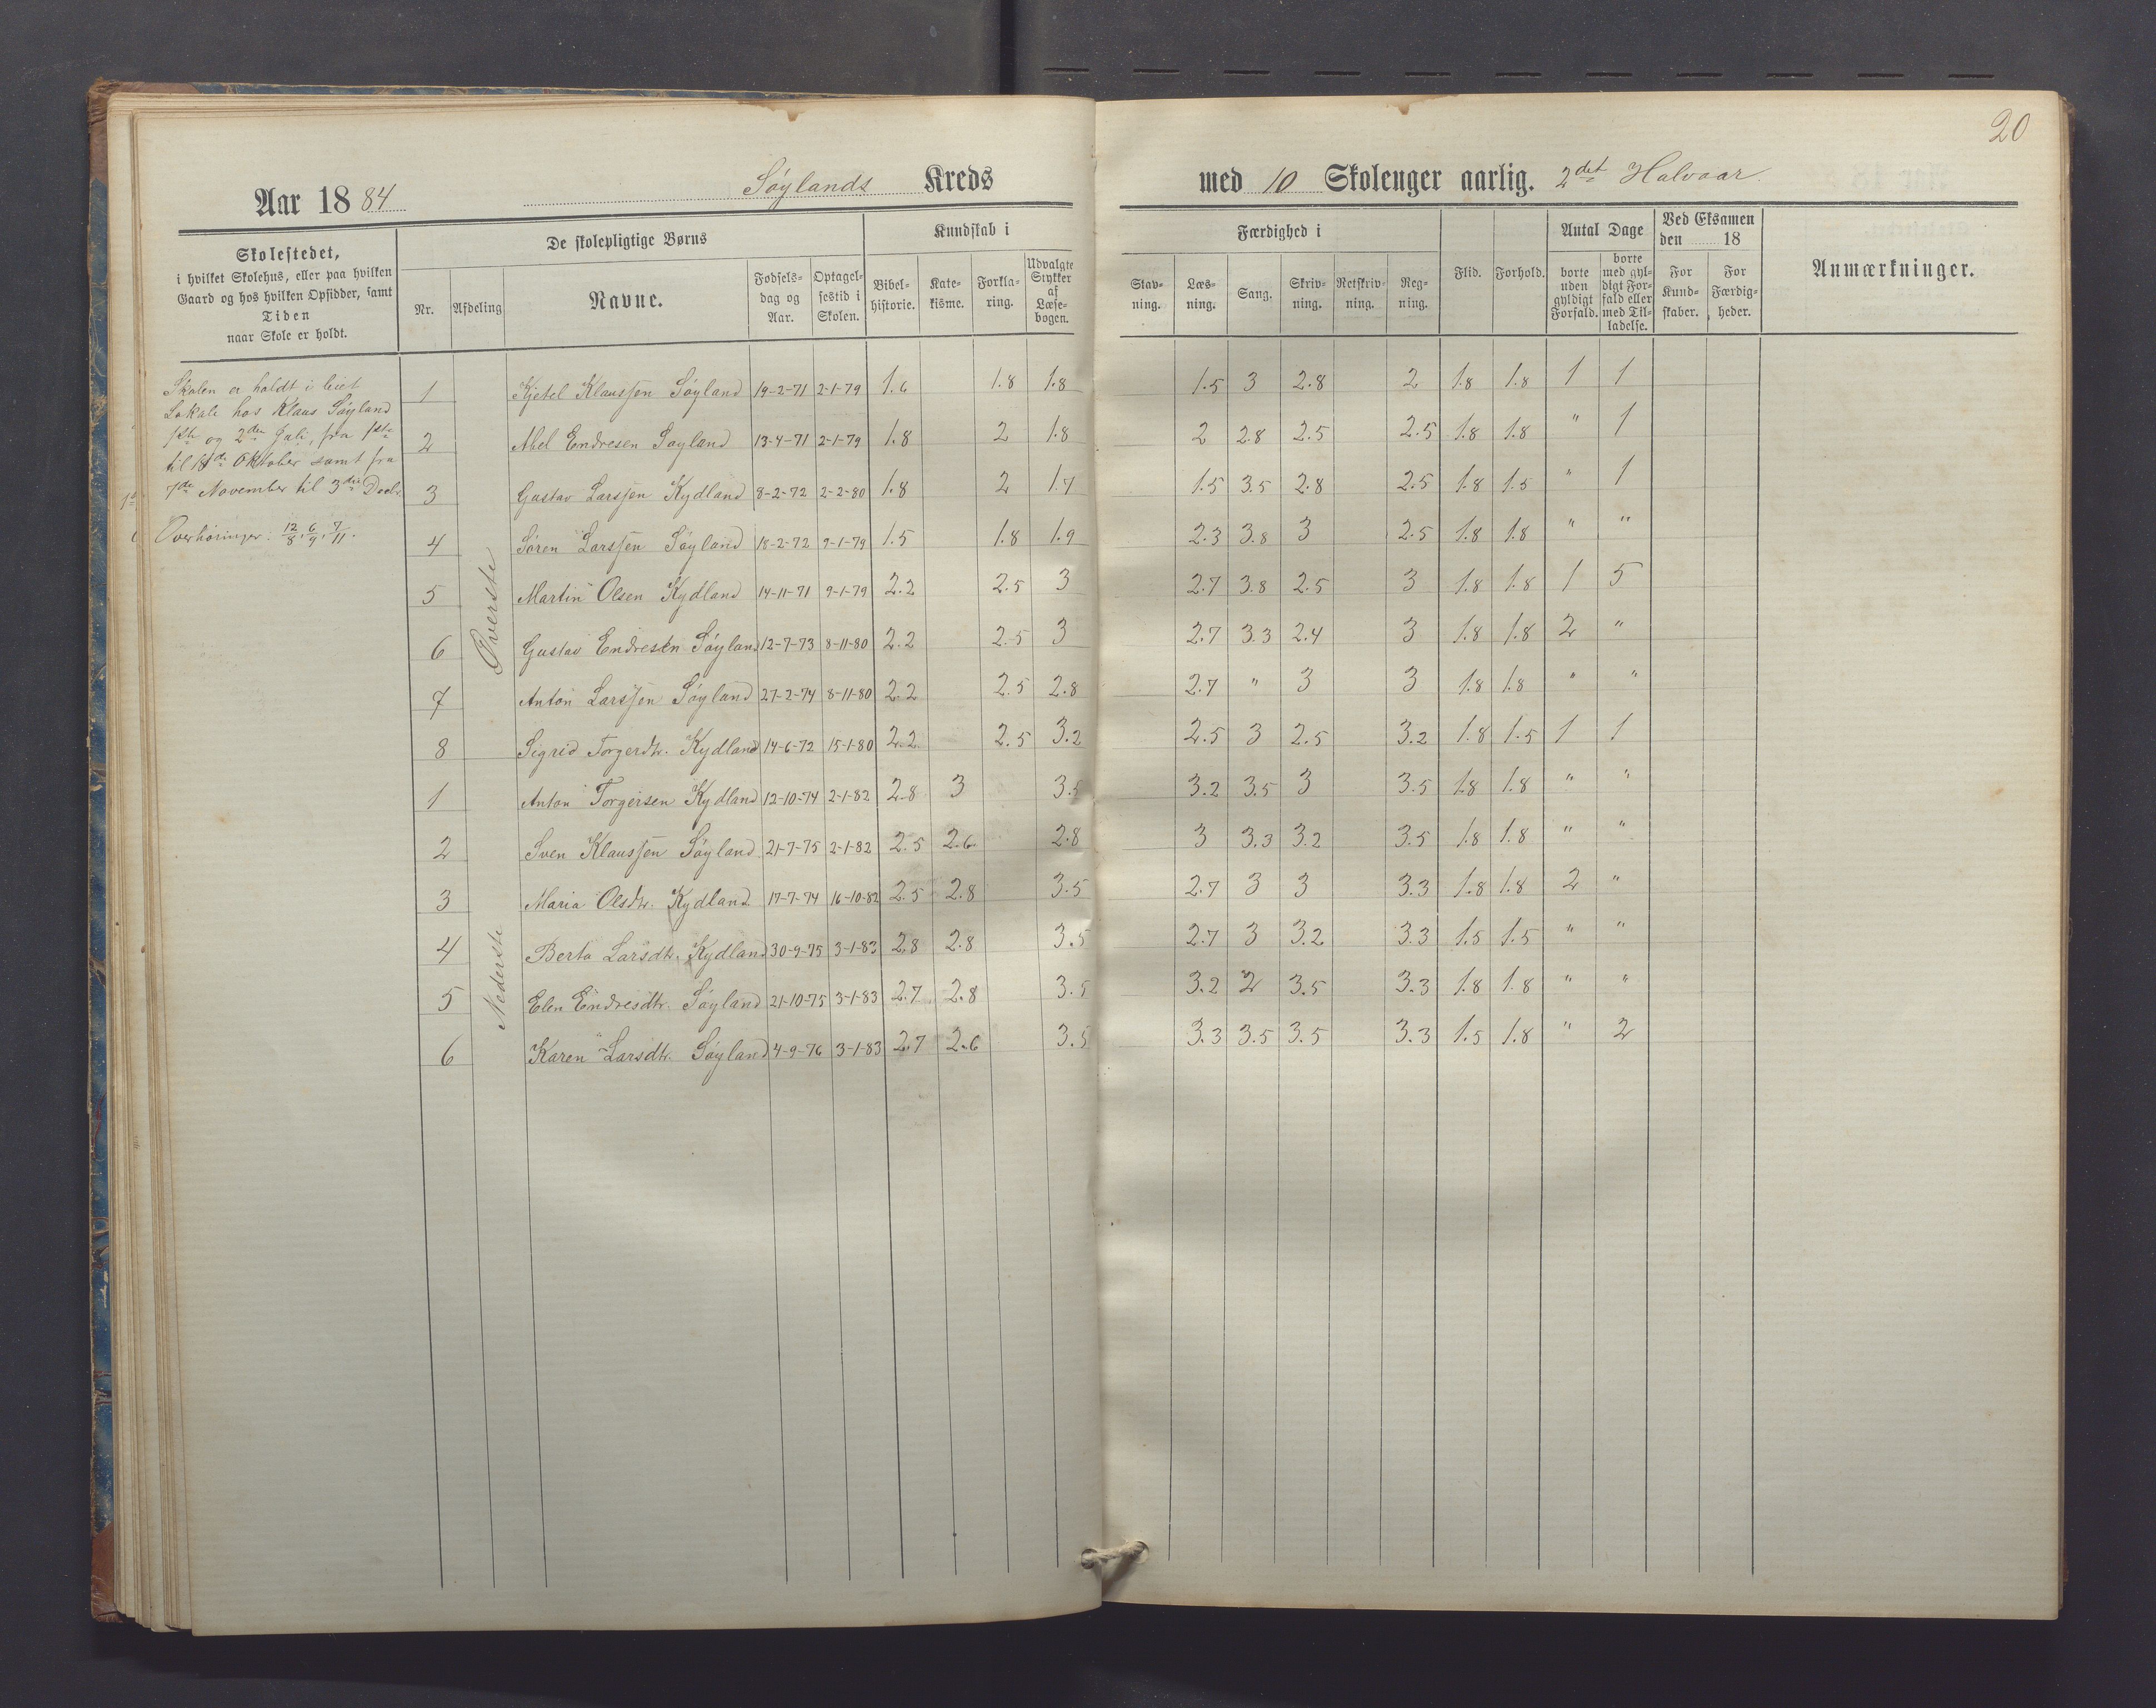 20
Aar 1884 Søylands Kreds med 10 Skoleuger aarlig. 2det Halvaar.
Skolestedet,
i hvilket Skolehus, eller paa hvilken
Gaard og hos hvilken Opsidder, samt
Tiden
naar Skole er holdt.
De skolepligtige Børns
Nr. Afdeling Navne. Fødsels-dag og Aar. Optagel-sestid i Skolen.
Kundskab i
Bibel-historie. Kate-kisme. Forkla-ring. Udvalgte Stykker af Læse-bogen.
Færdighed i
Stav-ning. Læs-ning. Sang. Skriv-ning. Retskriv-ning. Reg-ning.
Flid. Forhold.
Antal Dage
borte uden gyldigt Forfald. borte med gyl-digt For-fald eller med Til-ladelse.
Ved Eksamen den 18
For Kund-skaber. For Færdig-heder.
Anmærkninger.
Skolen er holdt i leiet
Lokale hos Klaus Søyland
1ste og 2den Juli, fra 1ste
til Oktober samt fra
7de November til 3die Decbr.
Overhøringer: 12/8, 6/9, 7/11.
Øverste
1 Kjetel Klaussen Søyland 19-2-71 2-1-79 1.6 1.8 1.8 1.5 3 2.8 2 1.8 1.8 1 1
2 Abel Endresen Søyland 13-4-71 2-1-79 1.8 2 1.8 2 2.8 2.5 2.5 1.8 1.8 " 1
3 Gustav Larssen Kydland 8-2-72 2-2-80 1.8 2 1.7 1.5 3.5 2.8 2.5 1.8 1.5 " 1
4 Søren Larssen Søyland 18-2-72 9-1-79 1.5 1.8 1.9 2.3 3.8 3 2.5 1.8 1.8 " "
5 Martin Olsen Kydland 14-11-71 9-1-79 2.2 2.5 3 2.7 3.8 2.5 3 1.8 1.8 1 5
6 Gustav Endresen Søyland 12-7-73 8-11-80 2.2 2.5 3 2.7 3.3 2.4 3 1.8 1.8 2 "
7 Anton Larssen Søyland 27-2-74 8-11-80 2.2 2.5 2.8 2.7 " 3 3 1.8 1.8 " "
8 Sigrid Torgerdtr. Kydland 14-6-72 15-1-80 2.2 2.5 3.2 2.5 3 2.5 3.2 1.8 1.5 1 1
Nederste
1 Anton Torgersen Kydland 12-10-74 2-1-82 2.8 3 3.5 3.2 3.5 3 3.5 1.8 1.8 " "
2 Sven Klaussen Søyland 21-7-75 2-1-82 2.5 2.6 2.8 3 3.3 3.2 3.5 1.8 1.8 " "
3 Maria Olsdtr. Kydland 17-7-74 16-10-82 2.5 2.8 3.5 2.7 3 3 3.3 1.8 1.8 2 "
4 Berta Larsdtr. Kydland 30-9-75 3-1-83 2.8 2.8 3.5 2.7 3 3.2 3.3 1.5 1.5 " "
5 Elen Endresdtr. Søyland 21-10-75 3-1-83 2.7 2.8 3.5 3.2 2 3.5 3.3 1.8 1.8 " "
6 Karen Larsdtr. Søyland 4-9-76 3-1-83 2.7 2.6 3.5 3.3 3.5 3.5 3.3 1.5 1.8 " 2